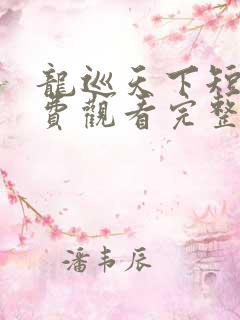 龍巡天下短
費觀看完整
潘韦辰